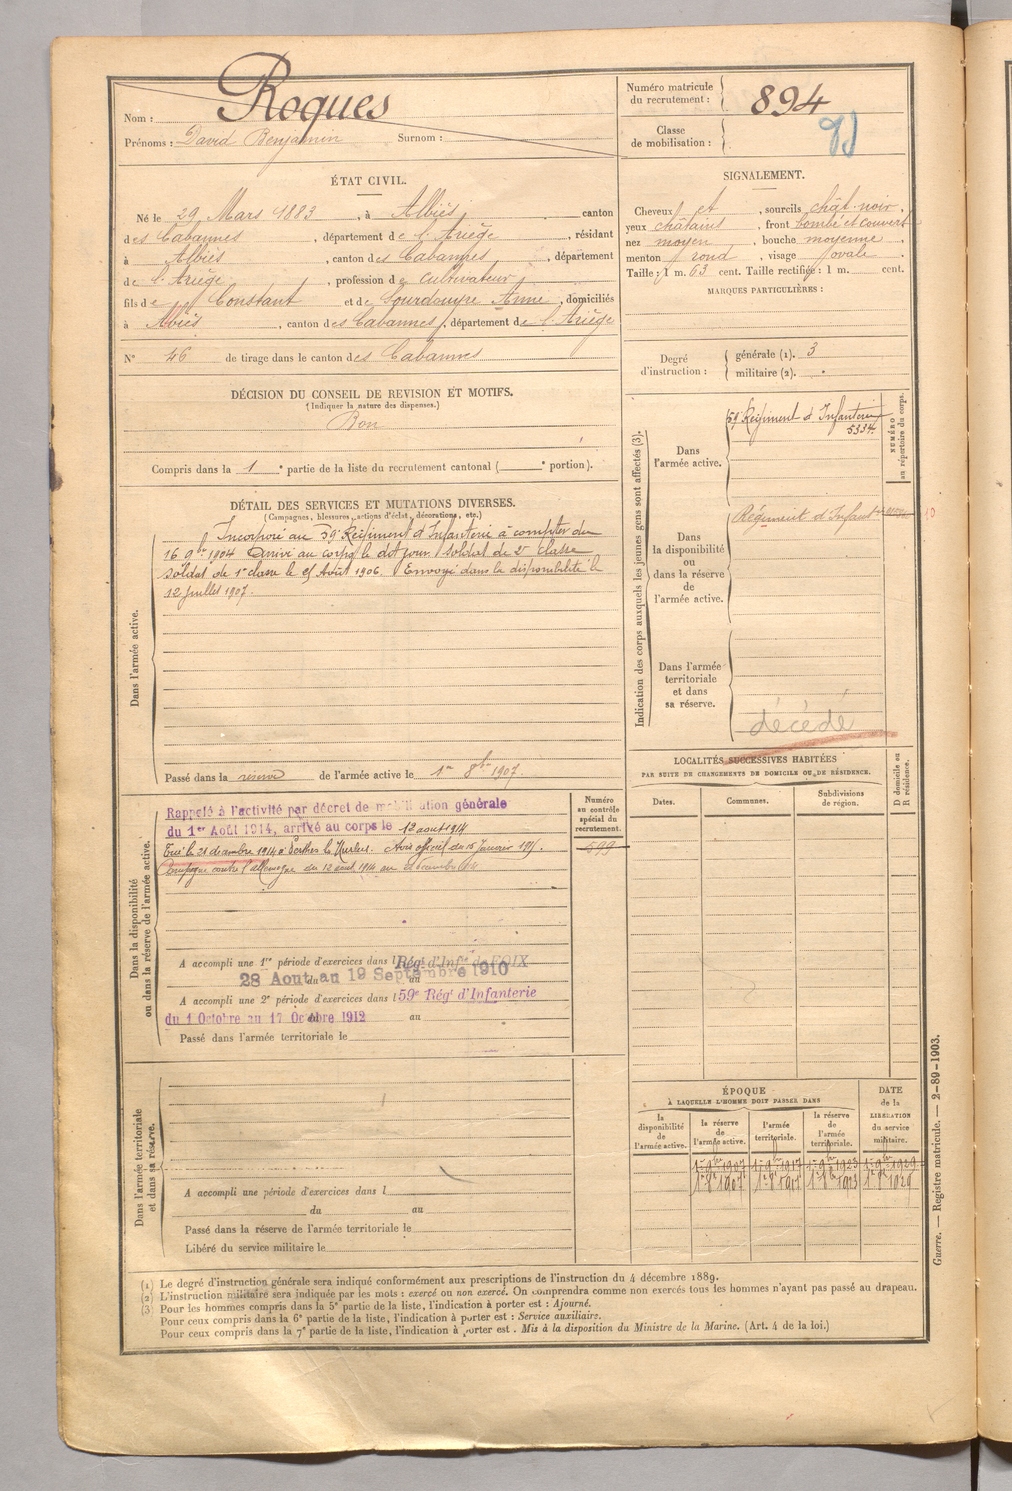 Nom : Roques
Prénoms : David Benjamin Surnom :
Numéro matricule du recrutement : 894
Classe de mobilisation :
ÉTAT CIVIL.
Né le 29 Mars 1883, à Albiès canton
des Cabannes, département de l'Ariège, résidant
à Albiès, canton des Cabannes, département
de l'Ariège, profession de cultivateur
fils de Constant et de Lourdouyre Anne, domiciliés
à Albiès, canton des Cabannes, département de l'Ariège
N° 46 de tirage dans le canton des Cabannes
SIGNALEMENT.
Cheveux et, sourcils chât. noir,
yeux châtains, front bombé et couvert
nez moyen, bouche moyenne,
menton rond, visage ovale.
Taille : 1 m. 63 cent. Taille rectifiée : 1 m. cent.
MARQUES PARTICULIÈRES :
Degré d'instruction : générale (1). 3
militaire (2).
DÉCISION DU CONSEIL DE REVISION ET MOTIFS.
(Indiquer la nature des dispenses.)
Bon
Compris dans la 1e partie de la liste du recrutement cantonal ( e portion).
DÉTAIL DES SERVICES ET MUTATIONS DIVERSES.
(Campagnes, blessures, actions d'éclat, décorations, etc.)
Dans l'armée active.
Incorporé au 59e Régiment d'Infanterie à compter du
16 9bre 1904 Arrivé au corps le dit jour. soldat de 2e classe
soldat de 1e classe le Août 1906. Envoyé dans la disponibilité le
12 juillet 1907.
Passé dans la réserve de l'armée active le 1er 8bre 1907.
Indication des corps auxquels les jeunes gens sont affectés (3).
NUMÉRO au répertoire du corps.
Dans l'armée active.
59e Régiment d'Infanterie
5334.
Dans la disponibilité ou dans la réserve de l'armée active.
Régiment d'Infant
Dans l'armée territoriale et dans sa réserve.
décédé
LOCALITÉS SUCCESSIVES HABITÉES
PAR SUITE DE CHANGEMENTS DE DOMICILE OU DE RÉSIDENCE.
D domicile ou R résidence.
Dates. Communes. Subdivisions de région.
Dans la disponibilité ou dans la réserve de l'armée active.
Numéro au contrôle spécial du recrutement.
Rappelé à l'activité par décret de mobilisation générale
du 1er Août 1914, arrivé au corps le 12 août 1914
Tué le 21 décembre 1914 à Perthes les Hurlus. Avis officiel du 15 Janvier 1915.
Campagne contre l'allemagne du 12 août 1914 au
A accompli une 1re période d'exercices dans l Rég. d'Infie de FOIX
28 Aout au 19 Septembre 1910
A accompli une 2e période d'exercices dans l 59e Régt d'Infanterie
du 1 Octobre au 17 Octobre 1912 au
Passé dans l'armée territoriale le
Dans l'armée territoriale et dans sa réserve.
A accompli une période d'exercices dans l
du au
Passé dans la réserve de l'armée territoriale le
Libéré du service militaire le
ÉPOQUE
À LAQUELLE L'HOMME DOIT PASSER DANS
la disponibilité de l'armée active. la réserve de l'armée active. l'armée territoriale. la réserve de l'armée territoriale.
DATE de la LIBÉRATION du service militaire.
1er 9bre 1907 1er 9bre 1917 1er 9bre 1923 1er 9bre 1929
(1) Le degré d'instruction générale sera indiqué conformément aux prescriptions de l'instruction du 4 décembre 1889.
(2) L'instruction militaire sera indiquée par les mots : exercé ou non exercé. On comprendra comme non exercés tous les hommes n'ayant pas passé au drapeau.
(3) Pour les hommes compris dans la 5e partie de la liste, l'indication à porter est : Ajourné.
Pour ceux compris dans la 6e partie de la liste, l'indication à porter est : Service auxiliaire.
Pour ceux compris dans la 7e partie de la liste, l'indication à porter est : Mis à la disposition du Ministre de la Marine. (Art. 4 de la loi.)
Guerre. — Registre matricule. — 2-89-1903.